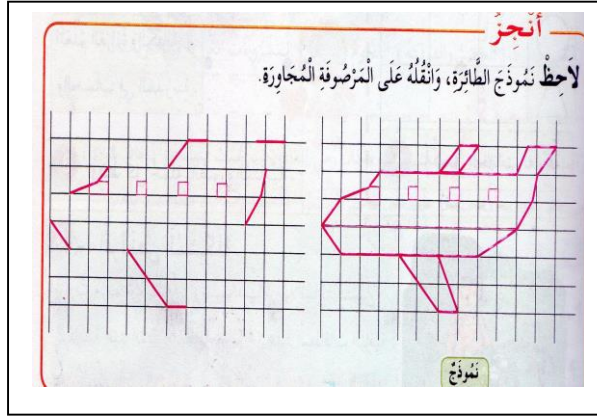 أُنْجِزُ
لاَحِظْ نَمُوذَجَ الطَّائِرَةِ، وَانْقُلْهُ عَلَى الْمَرْصُوفَةِ الْمُجَاوِرَةِ.
نَمُوذَجٌ